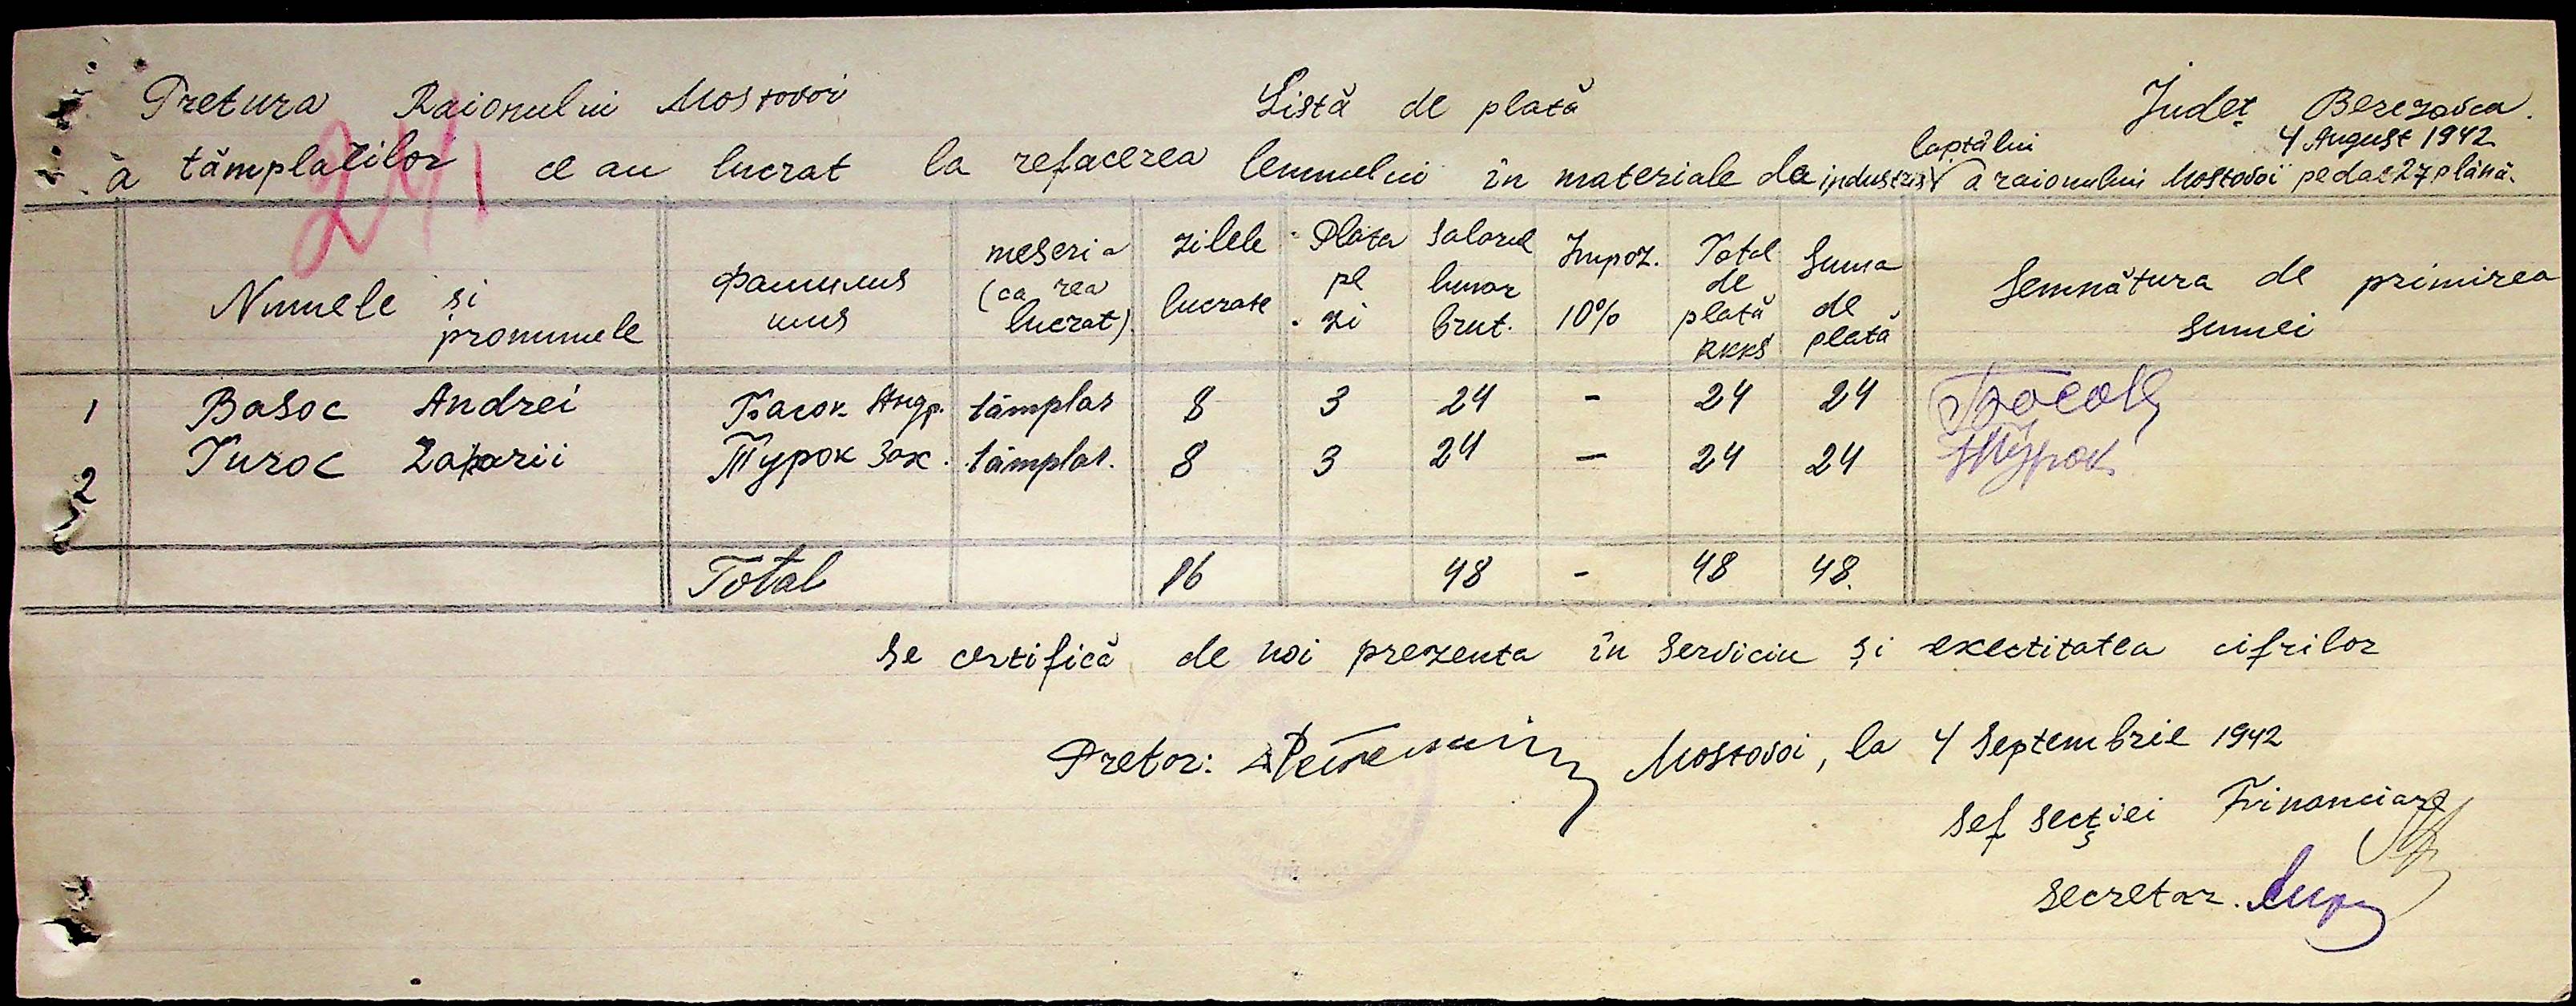 Pretura Raionului Mostovoi Listă de plată Județ Berezovca.
4 August 1942
laptâlui
a tâmplarilor ce au lucrat la refacerea lemnului în materiale de industria a raionului Mostovoi pe dat 27 până.
241
Numele și pronumele
Фамилия имя
meseria (ca rea lucrat)
zilele lucrate
Plata pe zi
Salarul lunar brut.
Impoz. 10%
Total de plată RKKS
Suma de plată
Semnătura de primirea sumei
1 Basoc Andrei Басок Андр. tâmplar 8 3 24 - 24 24 Басок
2 Turoc Zaharii Турок Зах. tâmplar. 8 3 24 - 24 24 Турок
Total 16 48 - 48 48.
Se certifică de noi prezenta în serviciu și exectitatea cifrilor
Pretor: Mostovoi, la 4 Septembrie 1942
Sef secției Financiare
Secretar. Lupu